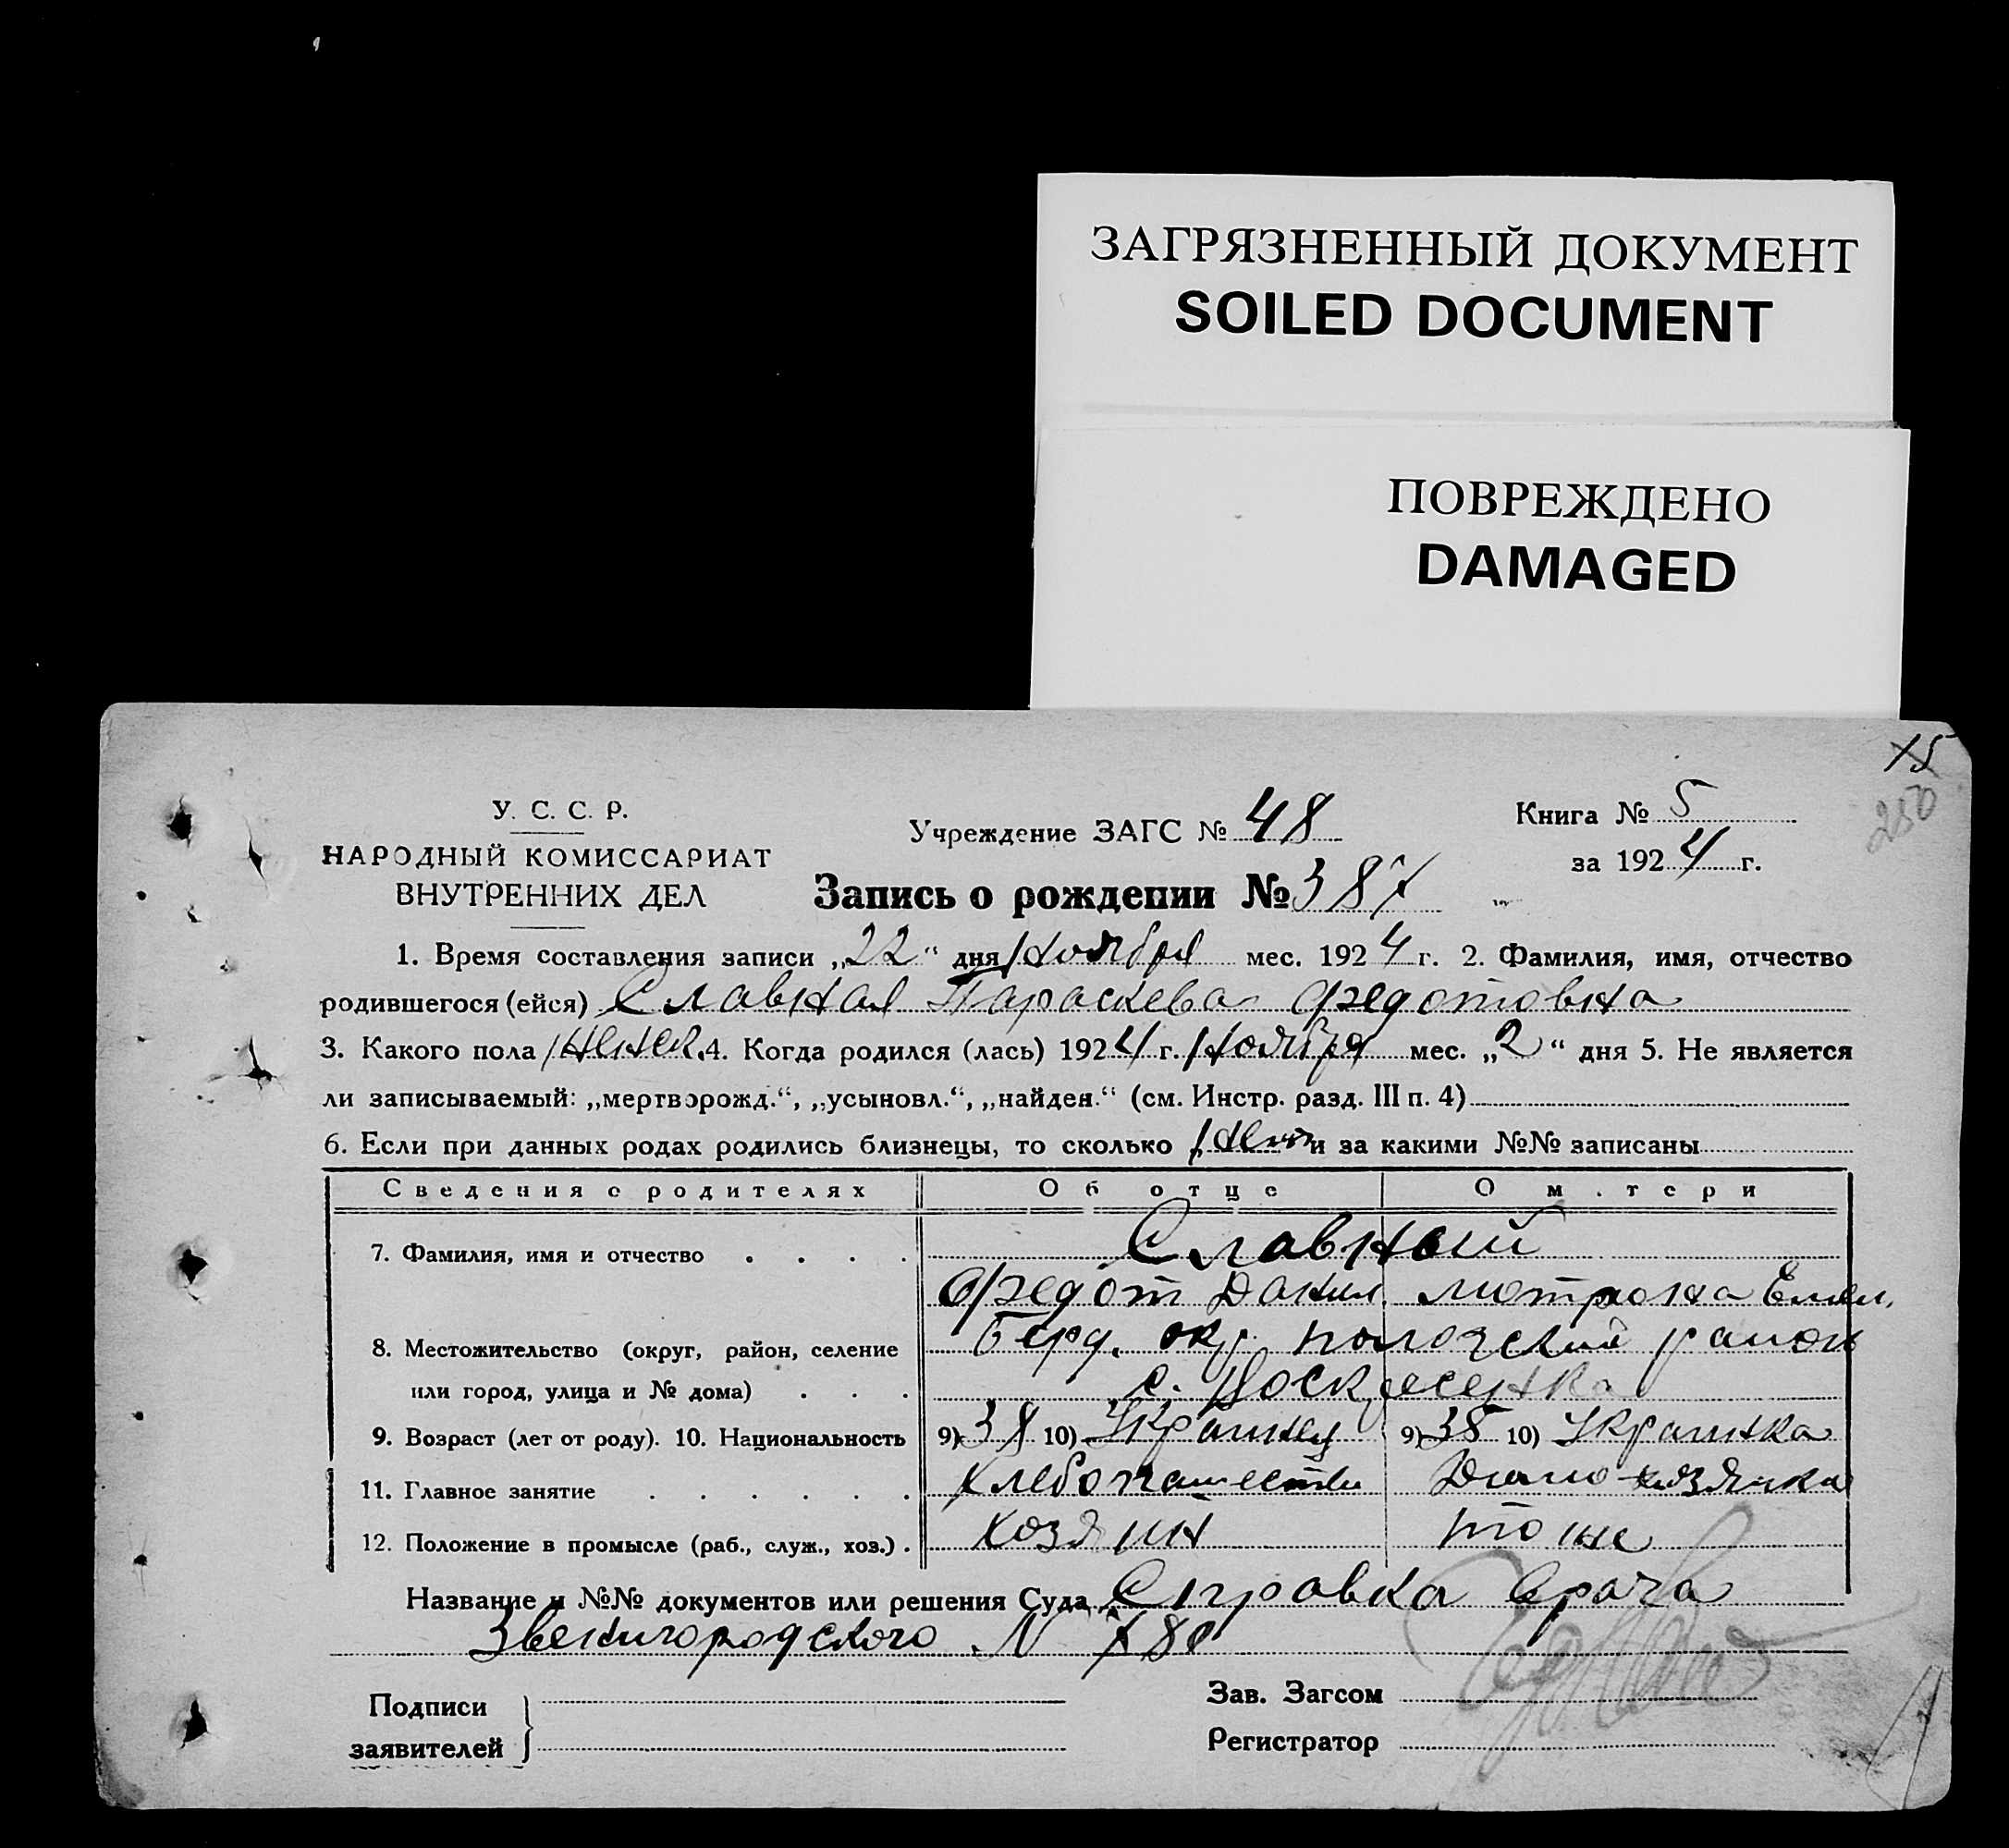 ЗАГРЯЗНЕННЫЙ ДОКУМЕНТ
SOILED DOCUMENT
ПОВРЕЖДЕНО
DAMAGED
15
250
У. С. С. Р.
НАРОДНЫЙ КОМИССАРИАТ
ВНУТРЕННИХ ДЕЛ
Учреждение ЗАГС № 48
Запись о рождении № 387
Книга № 5
за 1924 г.
1. Время составления записи „22“ дня Ноября мес. 1924 г. 2. Фамилия, имя, отчество
родившегося (ейся) Славная Параскева Федотовна
3. Какого пола женск. 4. Когда родился (лась) 1924 г. Ноября мес. „2“ дня 5. Не является
ли записываемый: „мертворожд.“, „усыновл.“, „найден.“ (см. Инстр. разд. III п. 4)
6. Если при данных родах родились близнецы, то сколько Нет и за какими №№ записаны
Сведения о родителях Об отце О м.тери
7. Фамилия, имя и отчество . . . . Славный
Федот Данил. Мотрона Емел.
8. Местожительство (округ, район, селение Берд. окр. пологский район
или город, улица и № дома) . . . с. Воскресенка
9. Возраст (лет от роду). 10. Национальность 9) 38 10) Украинец 9) 35 10) Украинка
11. Главное занятие . . . . . . Хлебопашество Домохозяйка
12. Положение в промысле (раб., служ., хоз.) . хозяин то же
Название и №№ документов или решения Суда Справка врача
Звенигородского N 780
Подписи
заявителей
Зав. Загсом
Регистратор